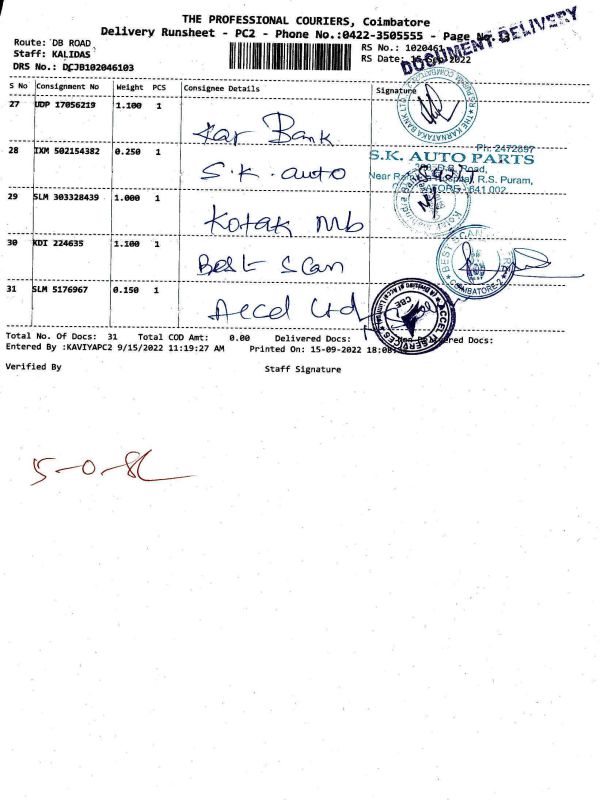 THE PROFESSIONAL COURIERS, Coimbatore
Delivery Runsheet - PC2 - Phone No.:0422-3505555 - Page No.
DOCUMENT DELIVERY
Route: DB ROAD
RS No.: 1020461
Staff: KALIDAS
RS Date: 15-Sep-2022
DRS No.: DCJB102046103
S No Consignment No Weight PCS Consignee Details Signature
27 UDP 17056219 1.100 1 Kar Bank
THE KARNATAKA BANK
28 IXM 502154382 0.250 1 S.K. auto
Ph: 2472697
S.K. AUTO PARTS
D.B. Road,
Hospital, R.S. Puram,
641 002
29 SLM 303328439 1.000 1 Kotak Mb
30 KDI 224635 1.100 1 Best Scan
BEST SCAN
COIMBATORE-2
31 SLM 5176967 0.150 1 Accel Ltd
ACCEL IT SERVICES
CBE
Total No. Of Docs: 31 Total COD Amt: 0.00 Delivered Docs: Non Delivered Docs:
Entered By :KAVIYAPC2 9/15/2022 11:19:27 AM Printed On: 15-09-2022 18:08
Verified By Staff Signature